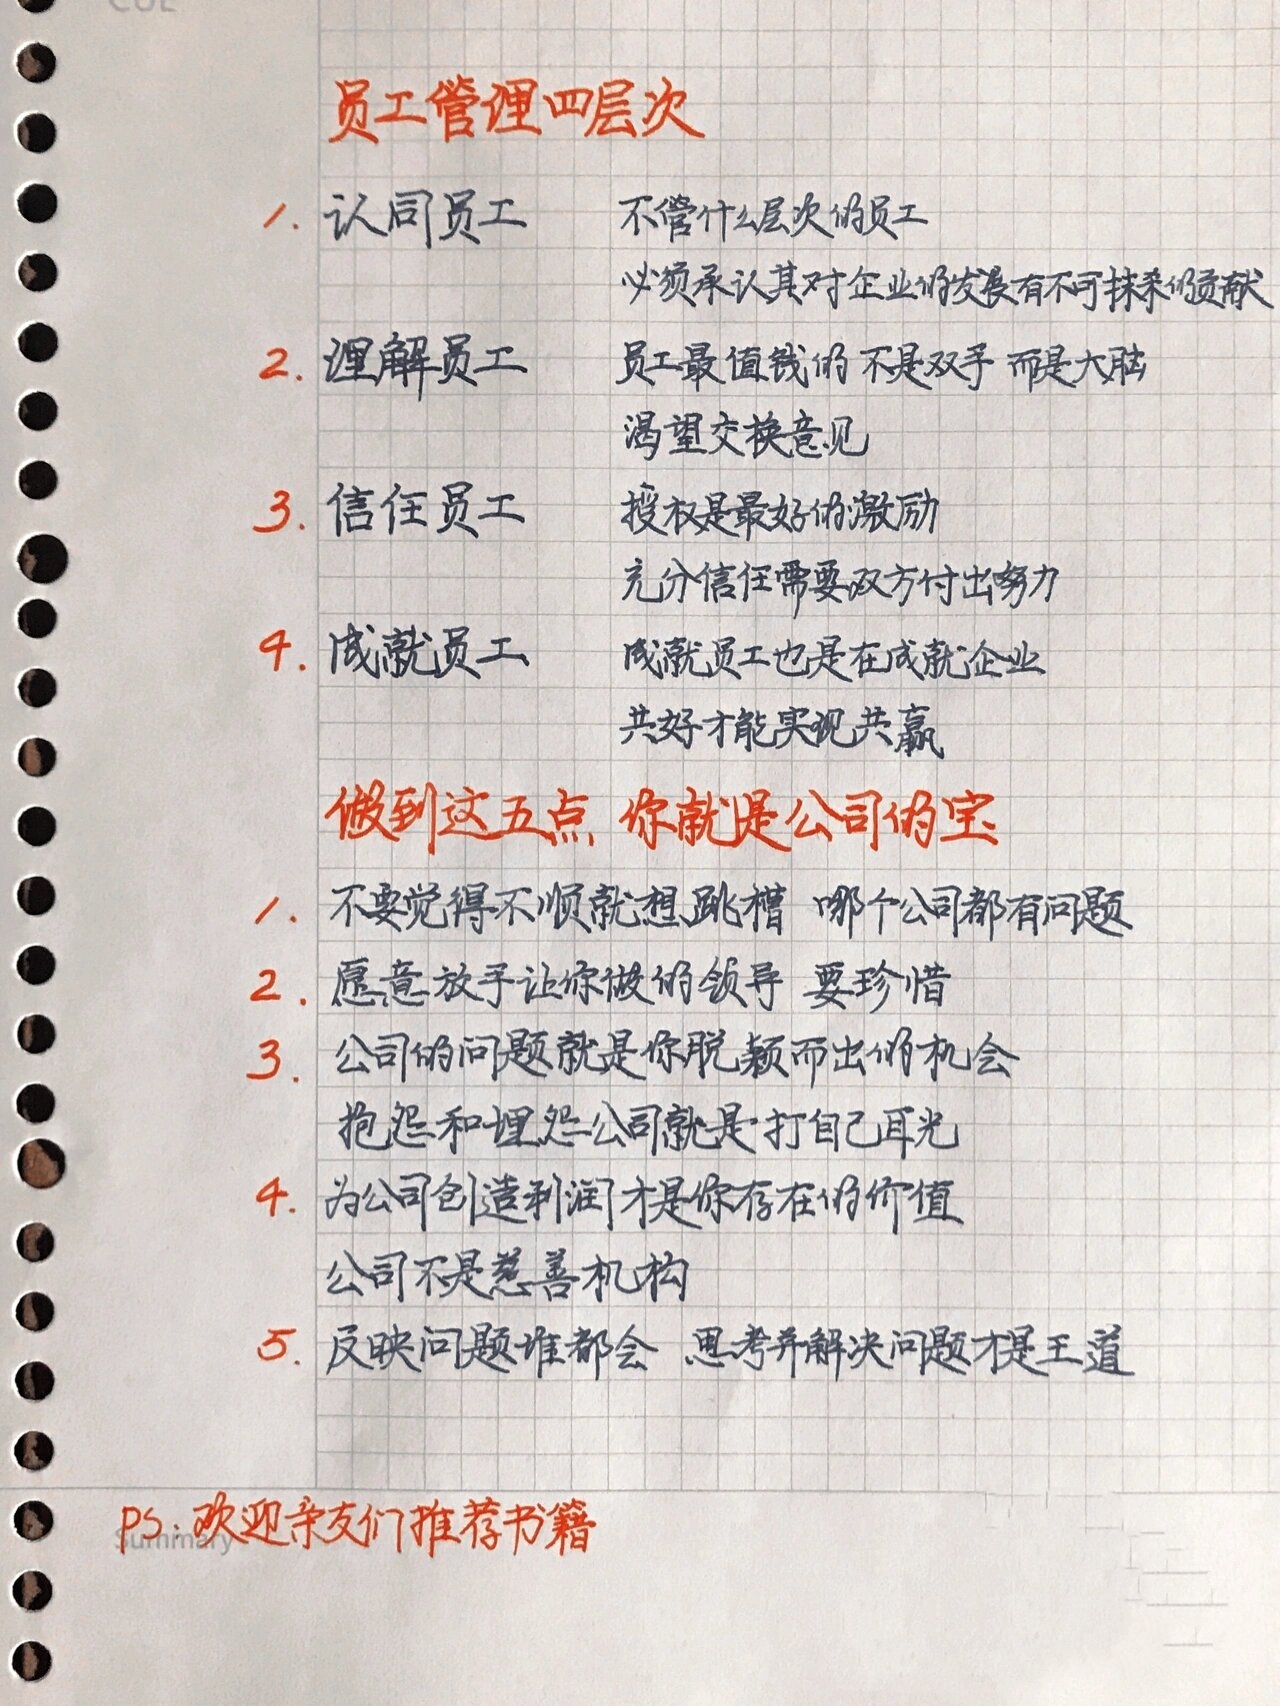 CUE
员工管理四层次
1. 认同员工 不管什么层次的员工
必须承认其对企业的发展有不可抹杀的贡献
2. 理解员工 员工最值钱的 不是双手 而是大脑
渴望交换意见
3. 信任员工 授权是最好的激励
充分信任需要双方付出努力
4. 成就员工 成就员工也是在成就企业
共好才能实现共赢
做到这五点 你就是公司的宝
1. 不要觉得不顺就想跳槽 哪个公司都有问题
2. 愿意放手让你做的领导 要珍惜
3. 公司的问题就是你脱颖而出的机会
抱怨和埋怨公司就是打自己耳光
4. 为公司创造利润才是你存在的价值
公司不是慈善机构
5. 反映问题谁都会 思考并解决问题才是王道
PS: 欢迎亲友们推荐书籍
Summary